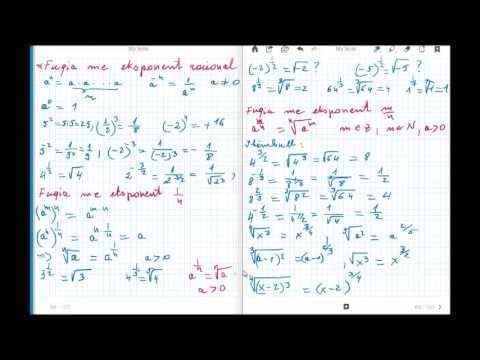 * Fuqia me eksponent racional
aⁿ = a·a·...·a (n)   a⁻ⁿ = 1/aⁿ   a ≠ 0
a⁰ = 1
5² = 5·5 = 25, (1/2)³ = 1/8   (-2)⁴ = +16
5⁻² = 1/5² =   , (-2)⁻³ = 1/(-2)³ = -1/8
4^(1/2) = √4   2^(-3/2) =
Fuqia me eksponent 1/n
(a^m)^n = a^(m·n)
(a^(1/n))^n = a^(1/n · n) = a
=> ⁿ√a = a^(1/n)
3^(1/2) = √3   a^(1/n) = ⁿ√a
a > 0
My Note
(-2)^(1/2) = √-2 ?   (-5)^(1/2) = √-5 ?
8^(1/3) = ³√8 = 2   64^(1/3) = ³√64 = 4
Fuqia me eksponent m/n
a^(m/n) = ⁿ√a^m   m∈Z, n∈N, a>0
Shembull:
4^(3/2) = √4³ = √64 = 8
8^(-1/3) = 1/8^(1/3) = 1/³√8 = 1/2
8^(2/3) = ³√8² = ³√64 = 4
4^(-1/2) = 1/4^(1/2) = 1/√4 = 1/2
⁴√x³ = x^(3/4)   ⁵√a² = a^(2/5)
√x³ = x^(3/2)
⁴√(x-2)³ = (x-2)^(3/4)